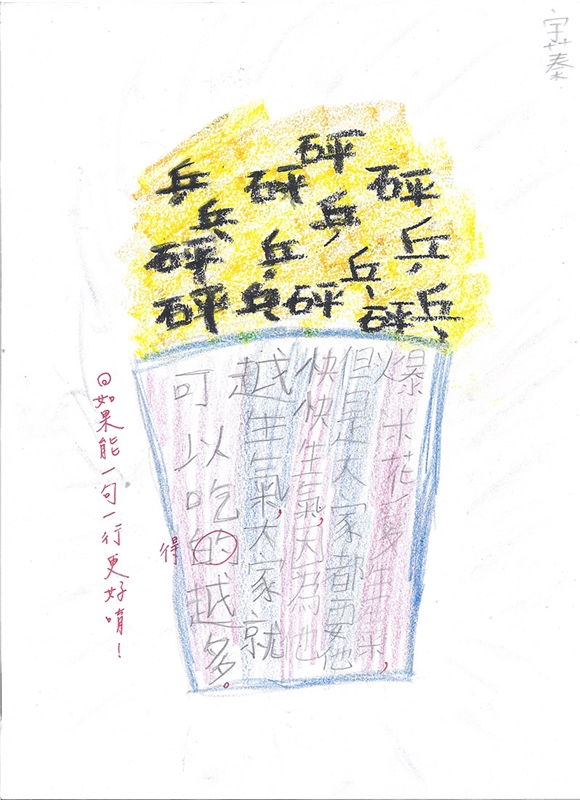 宇蓁
砰
乒 砰 砰
乓 乓
砰 乓 乓
乓
砰 乓 砰 砰 乓
爆米花愛生氣,
但是大家都要他
快快生氣,因為他
越生氣,大家就
可以吃的越多。
得
如果能一句一行更好唷!